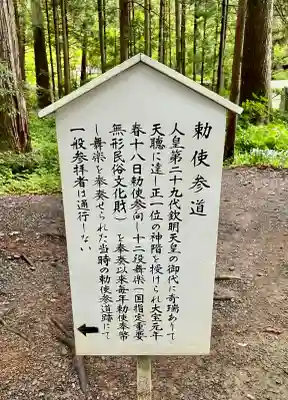 勅使参道
人皇第二十九代欽明天皇の御代に奇瑞ありて
天聴に達し正一位の神階を授けられ大宝元年
春十八日勅使参向し十二段舞楽(国指定重要
無形民俗文化財)を奉奏以来毎年勅使奉幣
し舞楽を奉奏せられた当時の勅使参道跡にて
一般参拝者は通行しない